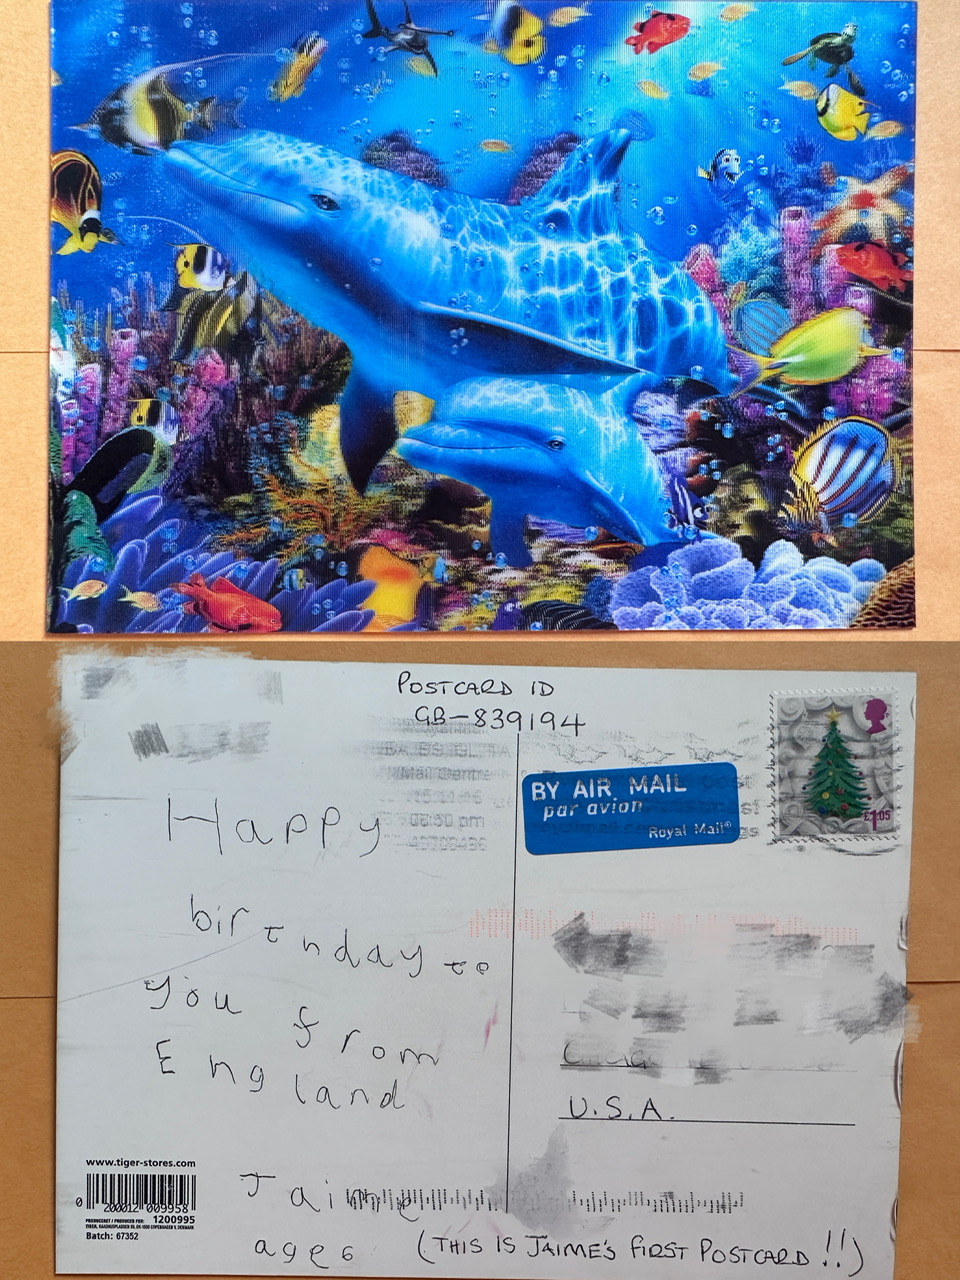 POSTCARD ID
GB-839194
Mail Centre
BY AIR MAIL
par avion
Royal Mail®
£1.05
Happy
birthday to
you from
England
U.S.A.
www.tiger-stores.com
0 200012 009958
PRODUCERET / PRODUCED FOR: 1200995
Batch: 67352
Jaime
age 6
(THIS IS JAIME'S FIRST POSTCARD !!)